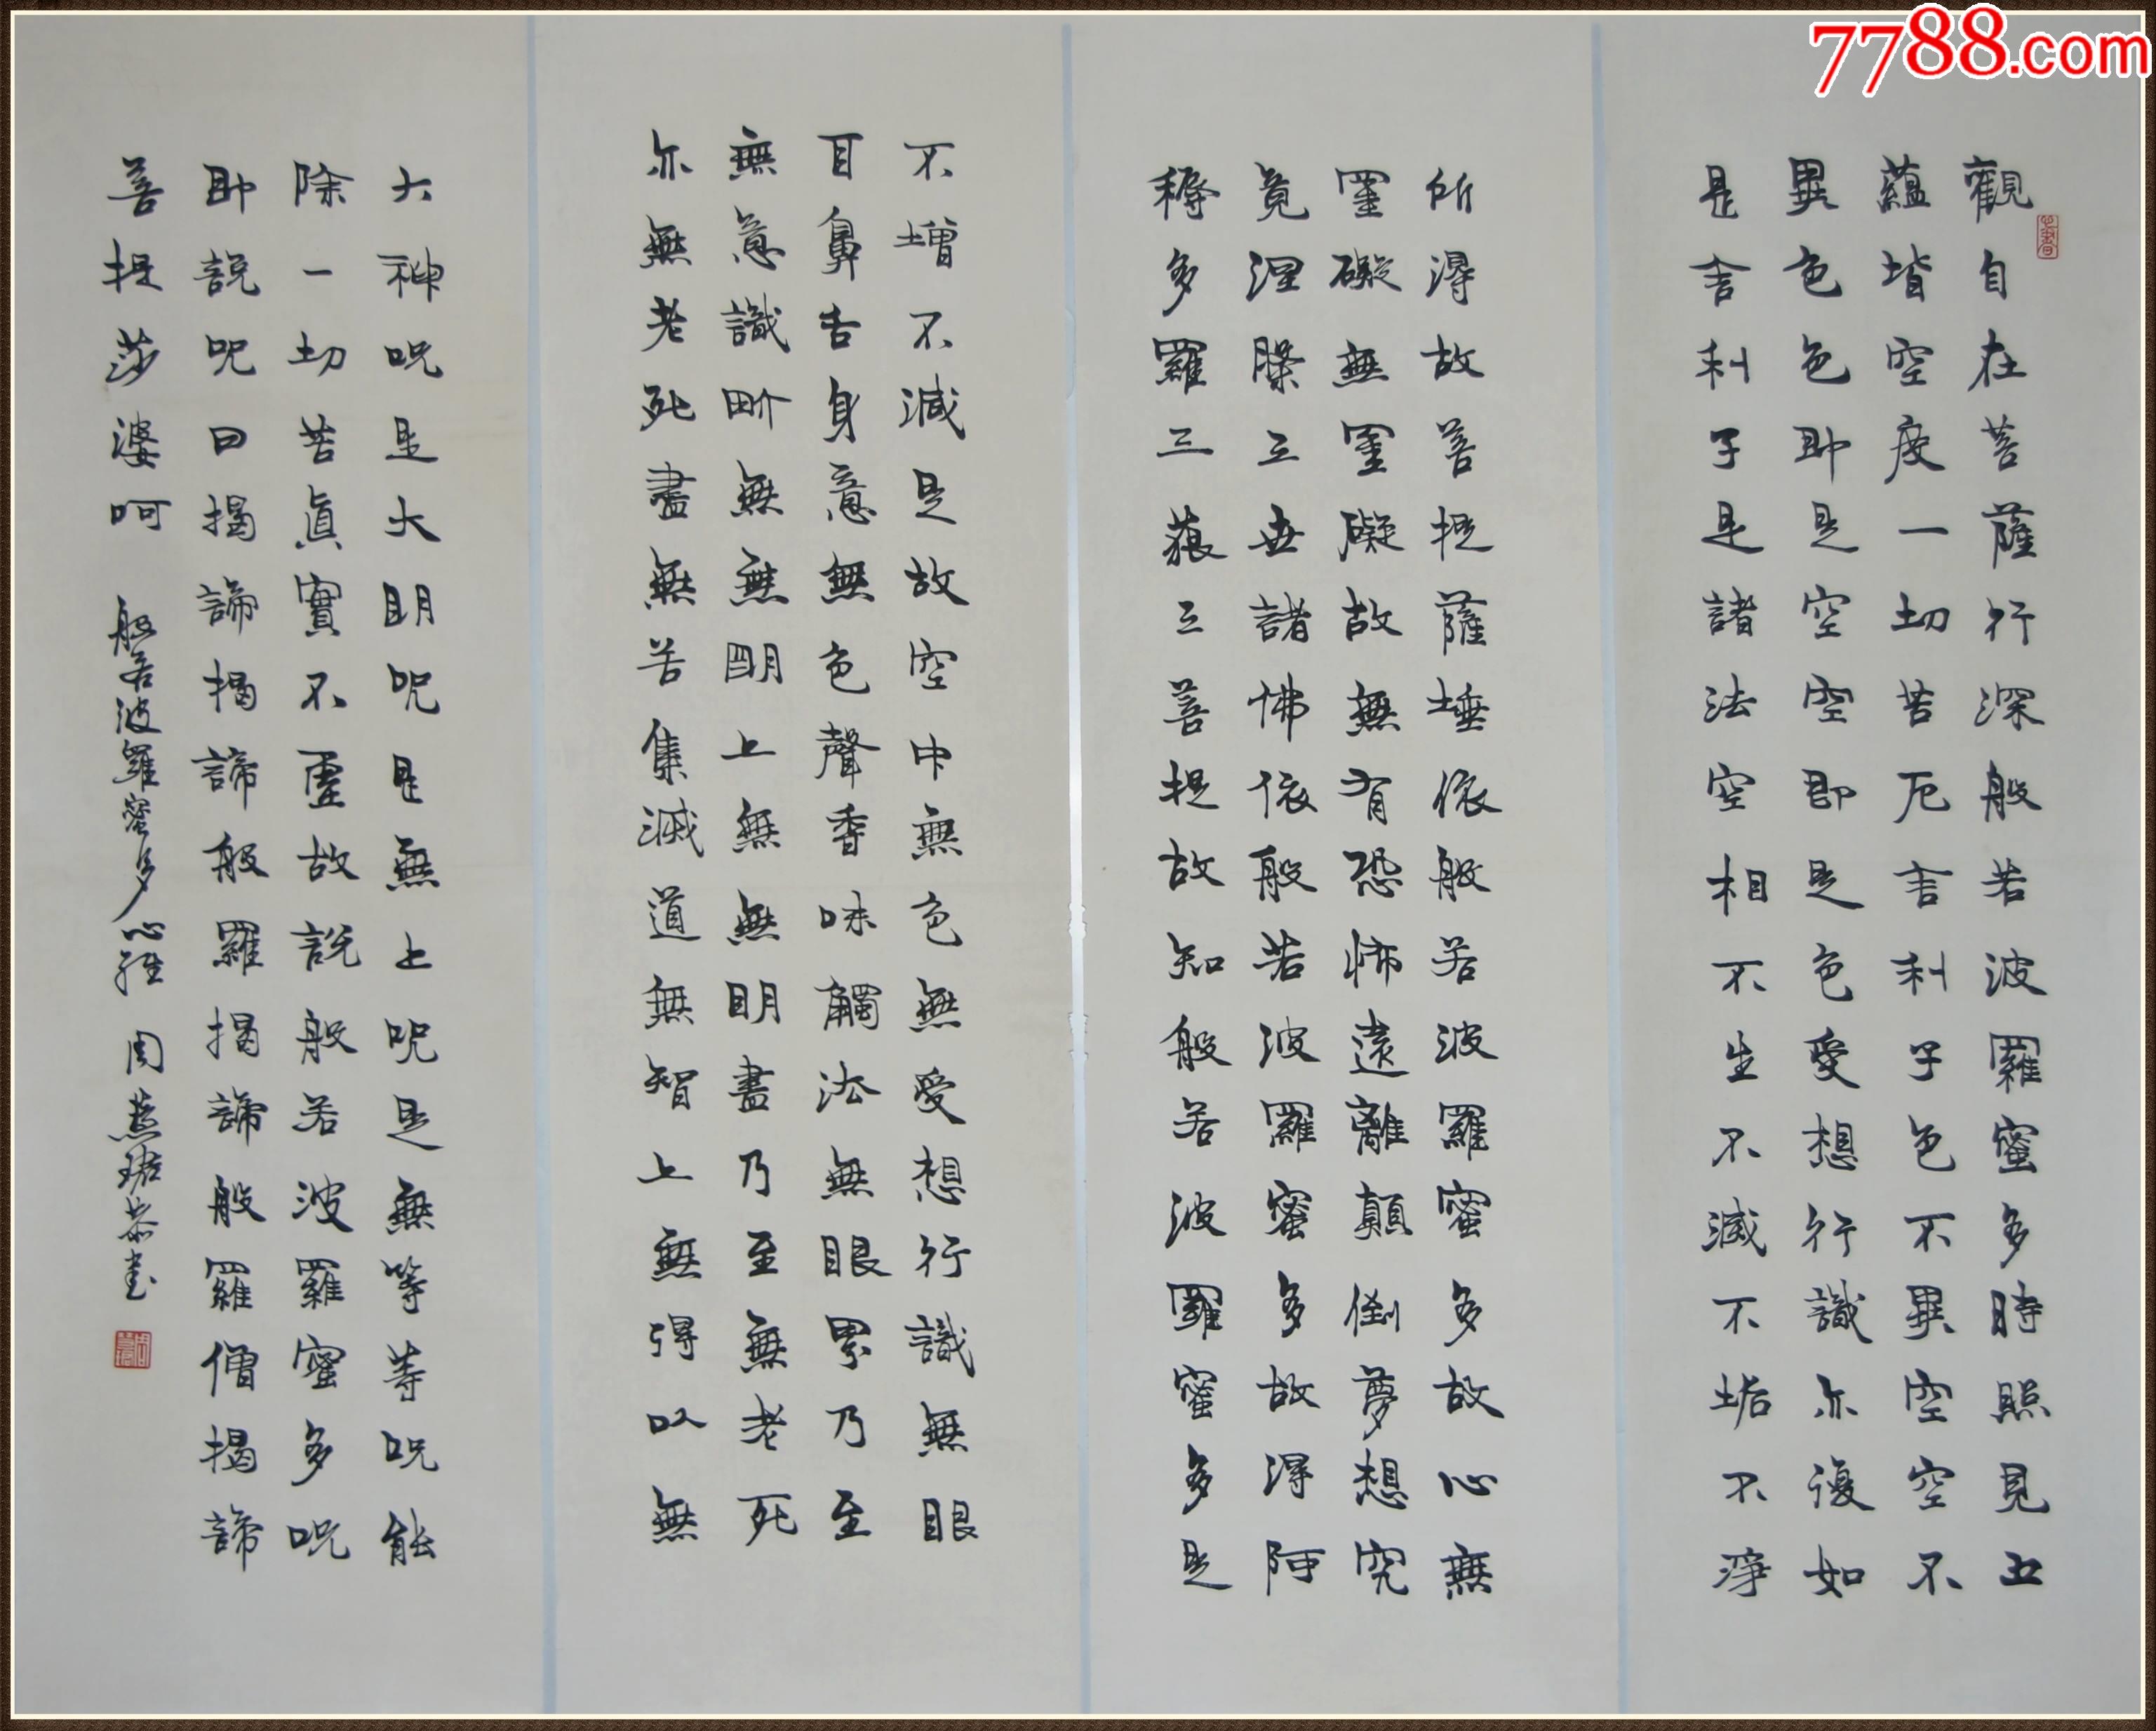 7788.com
觀自在菩薩行深般若波羅蜜多時照見五
蘊皆空度一切苦厄舍利子色不異空空不
異色色即是空空即是色受想行識亦復如
是舍利子是諸法空相不生不滅不垢不淨
所得故菩提薩埵依般若波羅蜜多故心無
罣礙無罣礙故無有恐怖遠離顛倒夢想究
竟涅槃三世諸佛依般若波羅蜜多故得阿
耨多羅三藐三菩提故知般若波羅蜜多是
不增不減是故空中無色無受想行識無眼
耳鼻舌身意無色聲香味觸法無眼界乃至
無意識界無無明上無無明盡乃至無老死
亦無老死盡無苦集滅道無智上無得以無
大神咒是大明咒是無上咒是無等等咒能
除一切苦真實不虛故說般若波羅蜜多咒
即說咒曰揭諦揭諦般羅揭諦般羅僧揭諦
菩提莎婆呵 般若波羅蜜多心經 周燕恭書